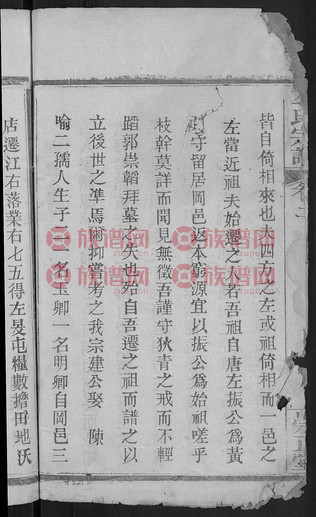 皆自倚相來也夫四五之左或祖倚相而一邑之
左當近祖夫始遷之人若吾祖自唐左振公爲黃
守留居岡邑返本窮源宜以振公爲始祖嗟乎
枝幹莫詳而聞見無徵吾謹守狄青之戒而不輕
蹈郭崇韜拜墓之失也始自吾遷之祖而譜之以
立後世之準焉爾抑嘗考之我宗建公娶 陳
喻二孺人生子二一名玉卿一名明卿自岡邑三
店遷江右落業石七五得左旻屯糧數擔田地沃
氏宗譜 卷一
族譜网